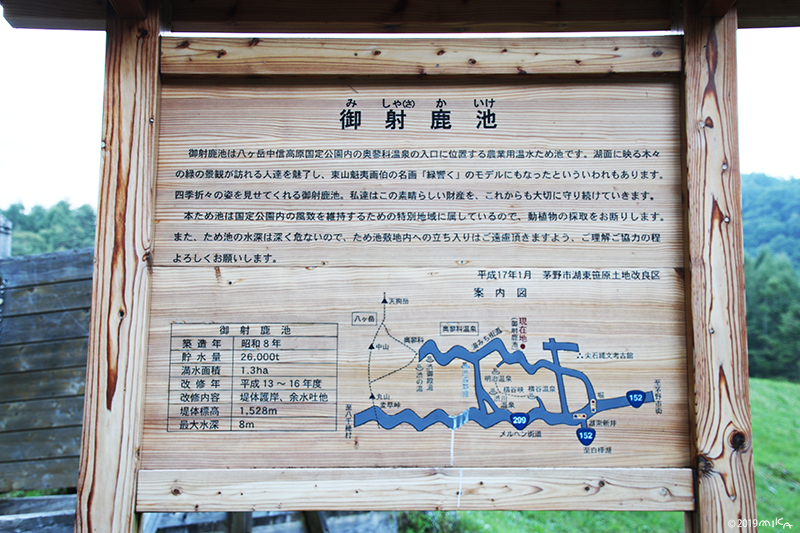 み しゃ(さ) か いけ
御射鹿池
御射鹿池は八ヶ岳中信高原国定公園内の奥蓼科温泉の入口に位置する農業用温水ため池です。湖面に映る木々
の緑の景観が訪れる人達を魅了し、東山魁夷画伯の名画「緑響く」のモデルにもなったといういわれもあります。
四季折々の姿を見せてくれる御射鹿池。私達はこの素晴らしい財産を、これからも大切に守り続けていきます。
本ため池は国定公園内の風致を維持するための特別地域に属しているので、動植物の採取をお断りします。
また、ため池の水深は深く危ないので、ため池敷地内への立ち入りはご遠慮頂きますよう、ご理解ご協力の程
よろしくお願いします。
平成17年1月 茅野市湖東笹原土地改良区
案内図
御射鹿池
築造年 昭和8年
貯水量 26,000t
満水面積 1.3ha
改修年 平成13～16年度
改修内容 堤体護岸、余水吐他
堤体標高 1,528m
最大水深 8m
天狗岳
八ヶ岳
中山
丸山
麦草峠
至八千穂村
奥蓼科
渋の湯
渋御殿湯
奥蓼科温泉
湯みち街道
現在地
(御射鹿池)
明治温泉
渋川温泉
横谷峡
横谷温泉
尖石縄文考古館
堀
湖東新井
至茅野市街
299
152
152
メルヘン街道
至白樺湖
©2019 MIKA